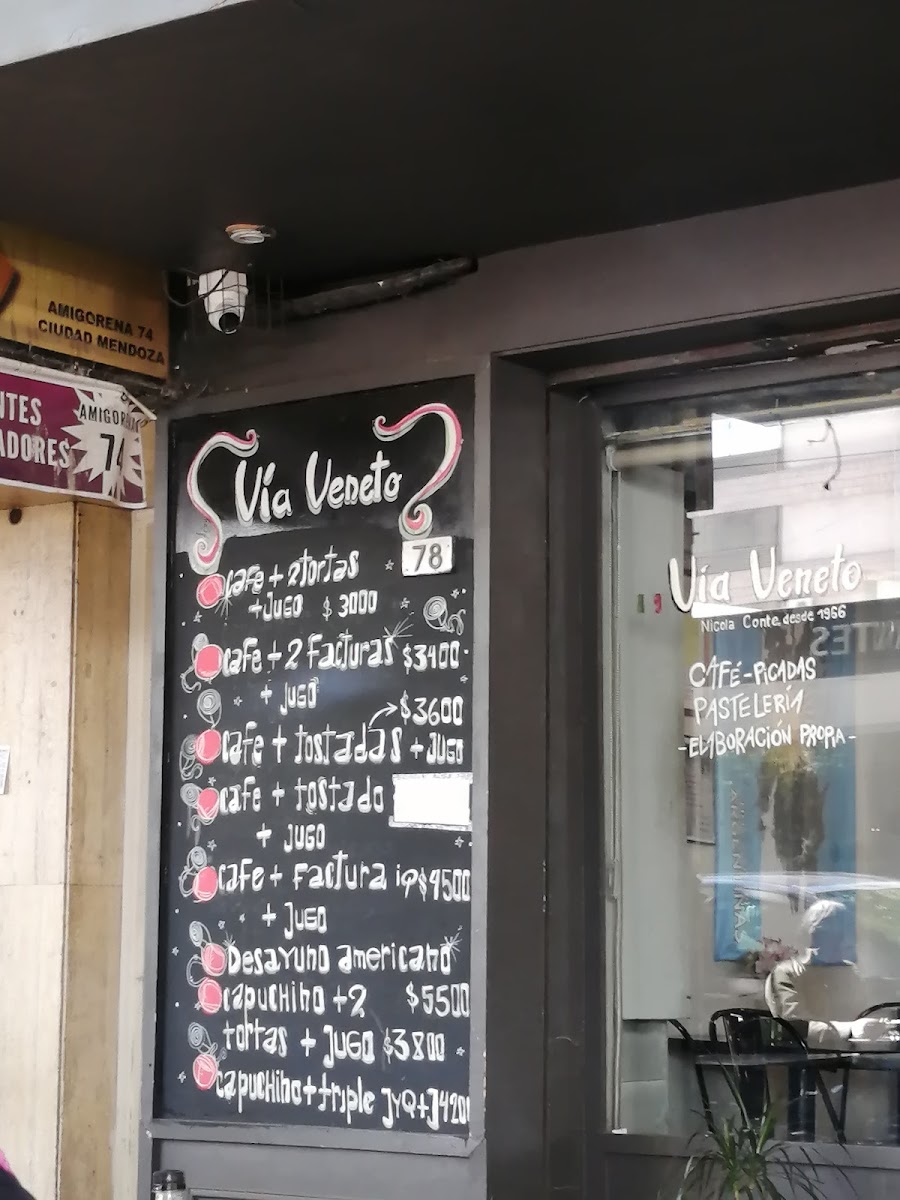 AMIGORENA 74
CIUDAD MENDOZA
NTES
ADORES
AMIGORENA
74
Vía Veneto
78
cafe + 2 tortas
+ JUGO $3000
cafe + 2 Facturas $3400
+ JUGO
$3600
cafe + tostadas + JUGO
cafe + tostado
+ JUGO
cafe + Factura JQ $4500
+ JUGO
Desayuno americano
$5500
capuchino + 2
tortas + JUGO $3800
capuchino + triple JyQ + J 4200
Vía Veneto
Nicola Conte desde 1966
CAFÉ - PICADAS
PASTELERÍA
- ELABORACIÓN PROPIA -
ARGENTINAS